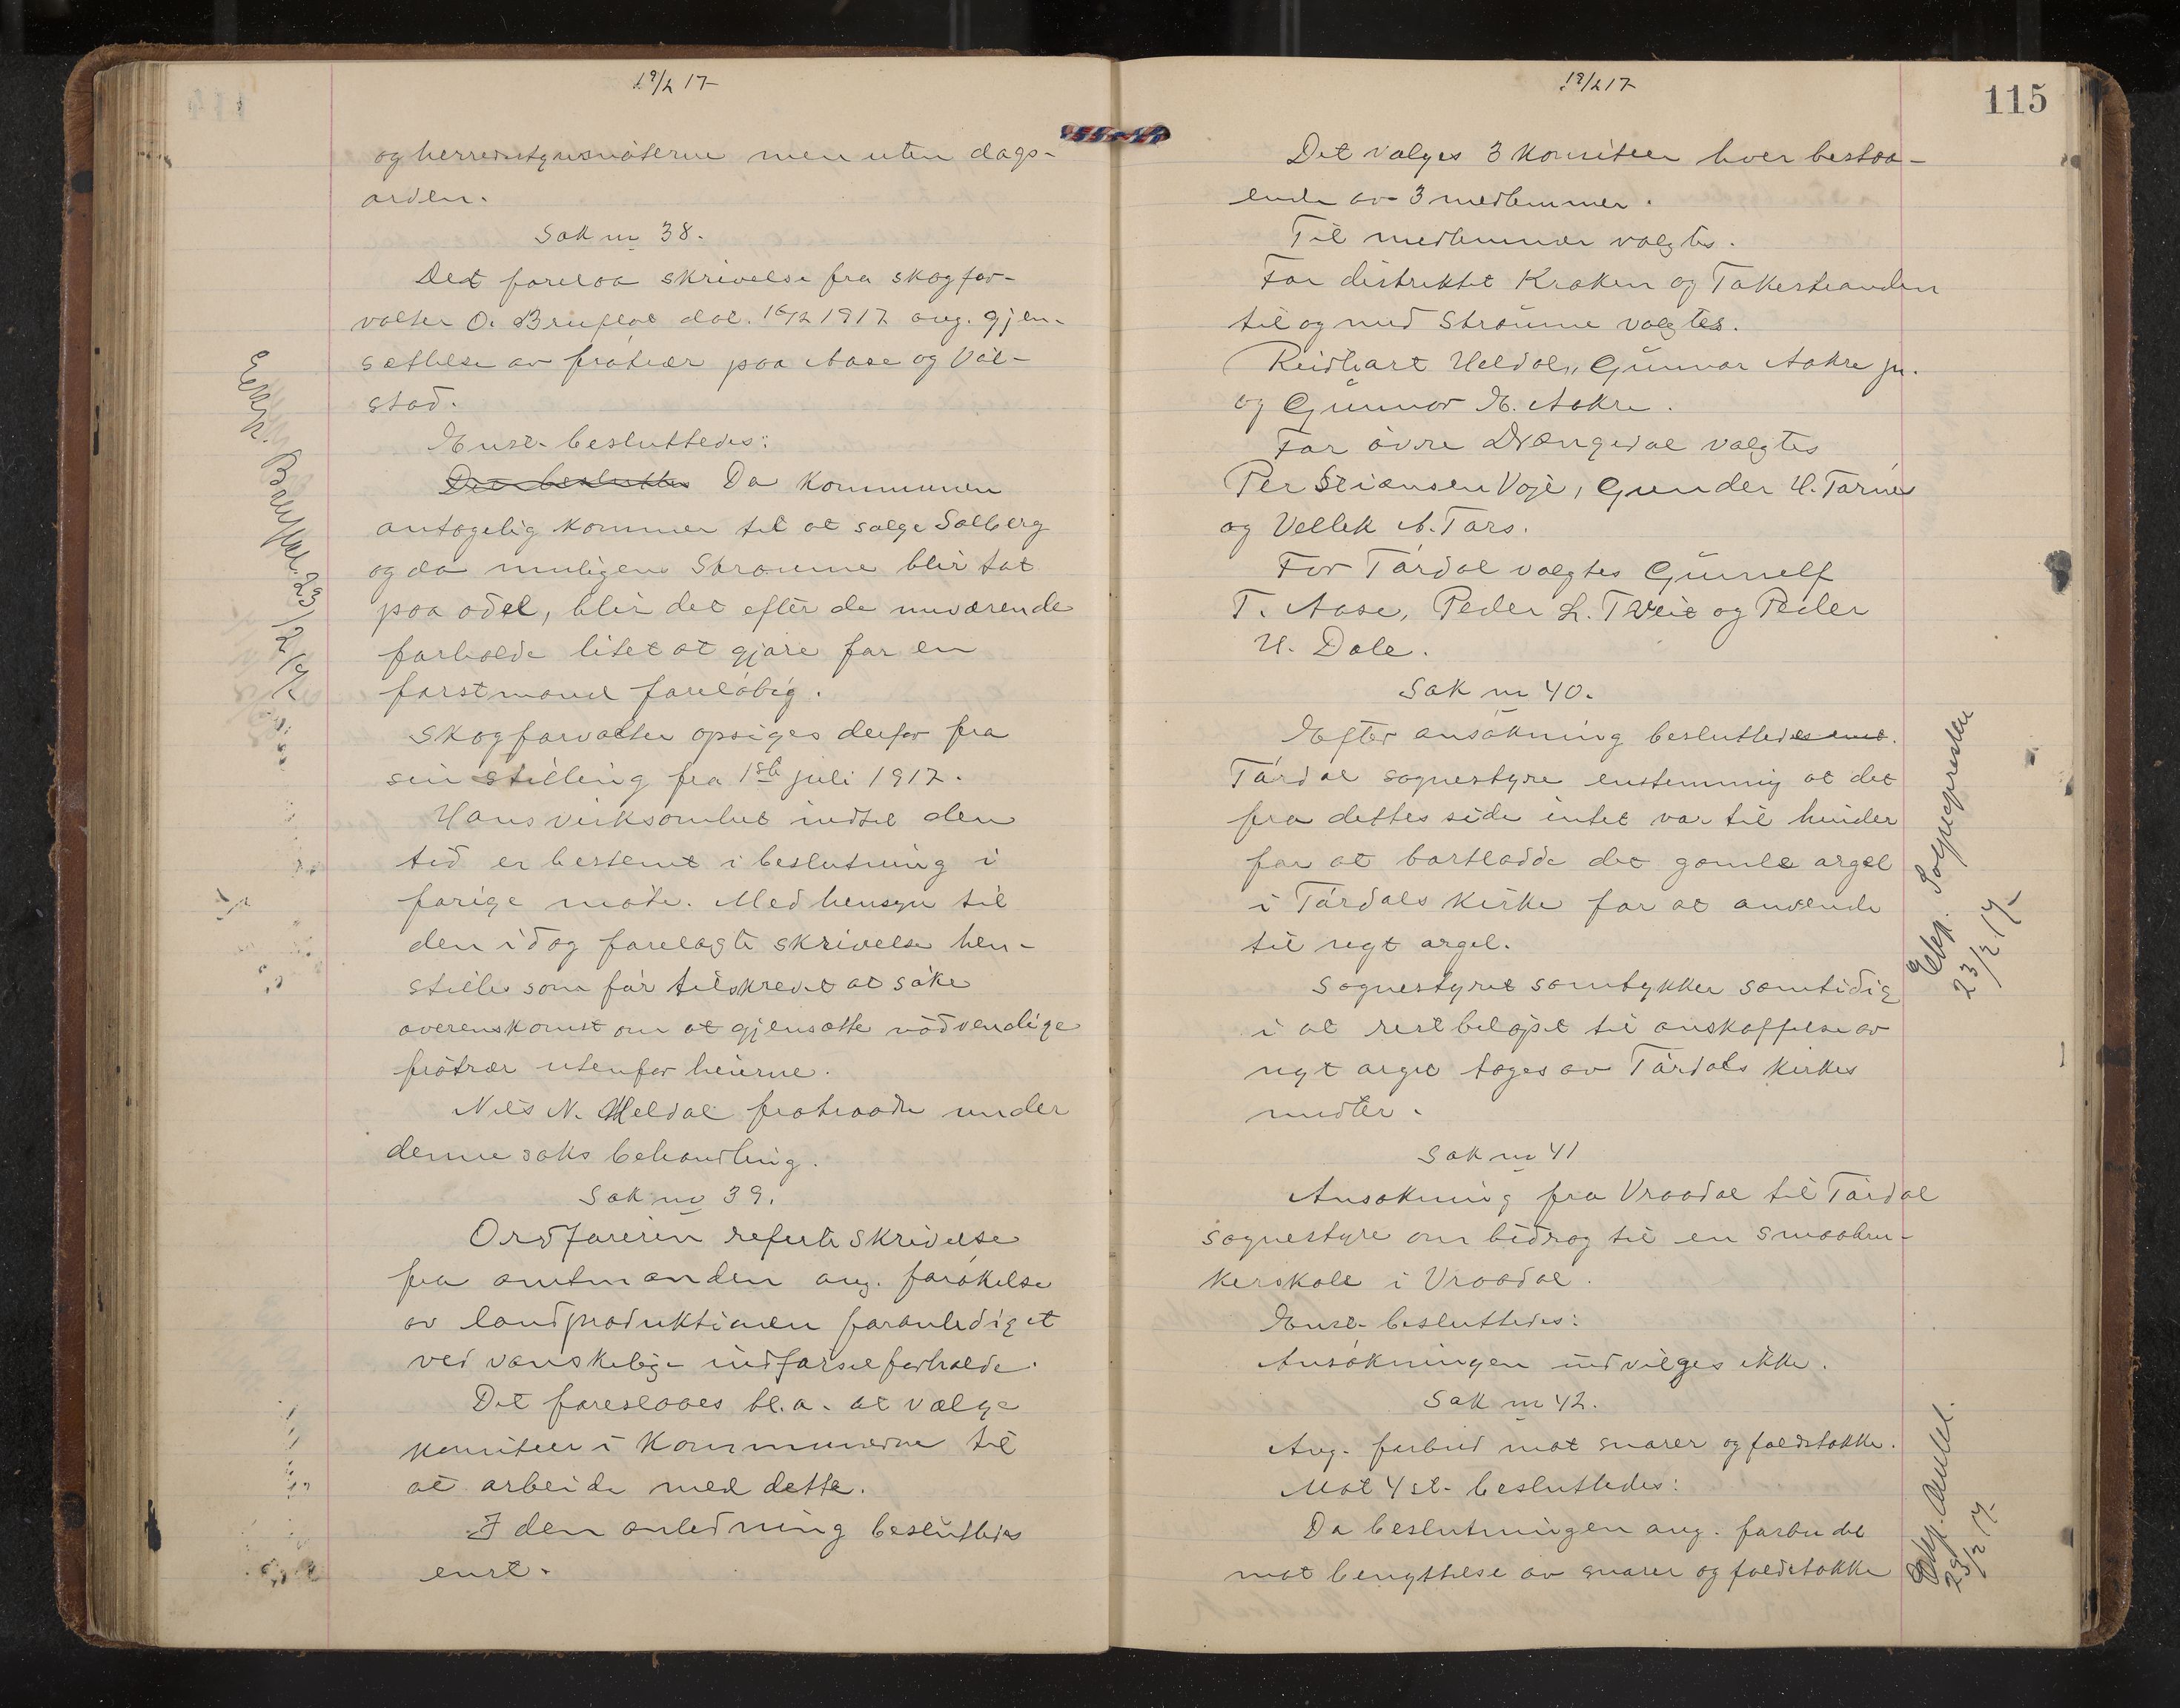 19/2 17
og herredsstyresmøterne men uten dags-
orden.
Sak nr 38.
Det forelaa skrivelse fra skogfor-
valter O. Bruflot dat. 16/2 1917 ang. gjen-
sættelse av frøtrær paa Aase og Vøl-
stad.
Enst. besluttedes:
Det besluttes Da kommunen
antagelig kommer til at sælge Solberg
og da muligens Straume blir tat
paa odel, blir det efter de nuværende
forholde litet at gjøre for en
forstmand foreløbig.
Skogforvalter opsiges derfor fra
sin stilling fra 1ste juli 1917.
Hans virksomhet indtil den
tid er bestemt i beslutning i
forige møte. Med hensyn til
den idag forelagte skrivelse hen-
stilles som før tilskrevet at søke
overenskomst om at gjensætte nødvendige
frøtrær utenfor heierne.
Nils N. Heldal fratraadte under
denne saks behandling.
Sak nr 39.
Ordføreren referte skrivelse
fra amtmanden ang. forøkelse
av landproduktionen foranlediget
ved vanskelige indførselsforholde.
Det foreslaaes bl.a. at vælge
komiteer i kommunerne til
at arbeide med dette.
I den anledning besluttedes
enst.
Eksp. Bruflot. 23/2 17
19/2 17
115
Det vælges 3 komiteer hver bestaa-
ende av 3 medlemmer.
Til medlemmer valgtes.
For distriktet Kroken og Tokestranden
til og med Straume valgtes.
Reidhart Heldal, Gunnar Aakre jr.
og Gunnar H. Aakre.
For øvre Drangedal valgtes
Per Stiansen Voje, Gunder H. Tørnes
og Vellek A. Tors.
For Tørdal valgtes Gunulf
T. Aase, Peder L. Tveit og Peder
H. Dale.
Sak nr 40.
Efter ansøkning besluttedes enst.
Tørdal sognestyre enstemmig at det
fra dettes side intet var til hinder
for at bortlodde det gamle orgel
i Tørdals kirke for at anvende
til nyt orgel.
Sognestyret samtykker samtidig
i at restbeløpet til anskaffelse av
nyt orgel tages av Tørdals kirkes
midler.
Eksp. Sognepresten
23/2 17
Sak nr 41
Ansøkning fra Vraadal til Tørdal
sognestyre om bidrag til en smaabru-
kerskole i Vraadal.
Enst. besluttedes:
Ansøkningen indvilges ikke.
Sak nr 42.
Ang. forbud mot snarer og faldstokke.
Mot 4 st. besluttedes:
Da beslutningen ang. forbudet
mot benyttelse av snarer og faldstokke
Eksp. Amtet.
23/2 17